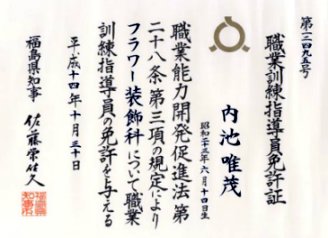 第一二四九五号
職業訓練指導員免許証
内池唯茂
昭和二十三年六月十四日生
職業能力開発促進法第
二十八条第三項の規定により
フラワー装飾科について職業
訓練指導員の免許を与える
平成十四年十月三十日
福島県知事 佐藤栄佐久